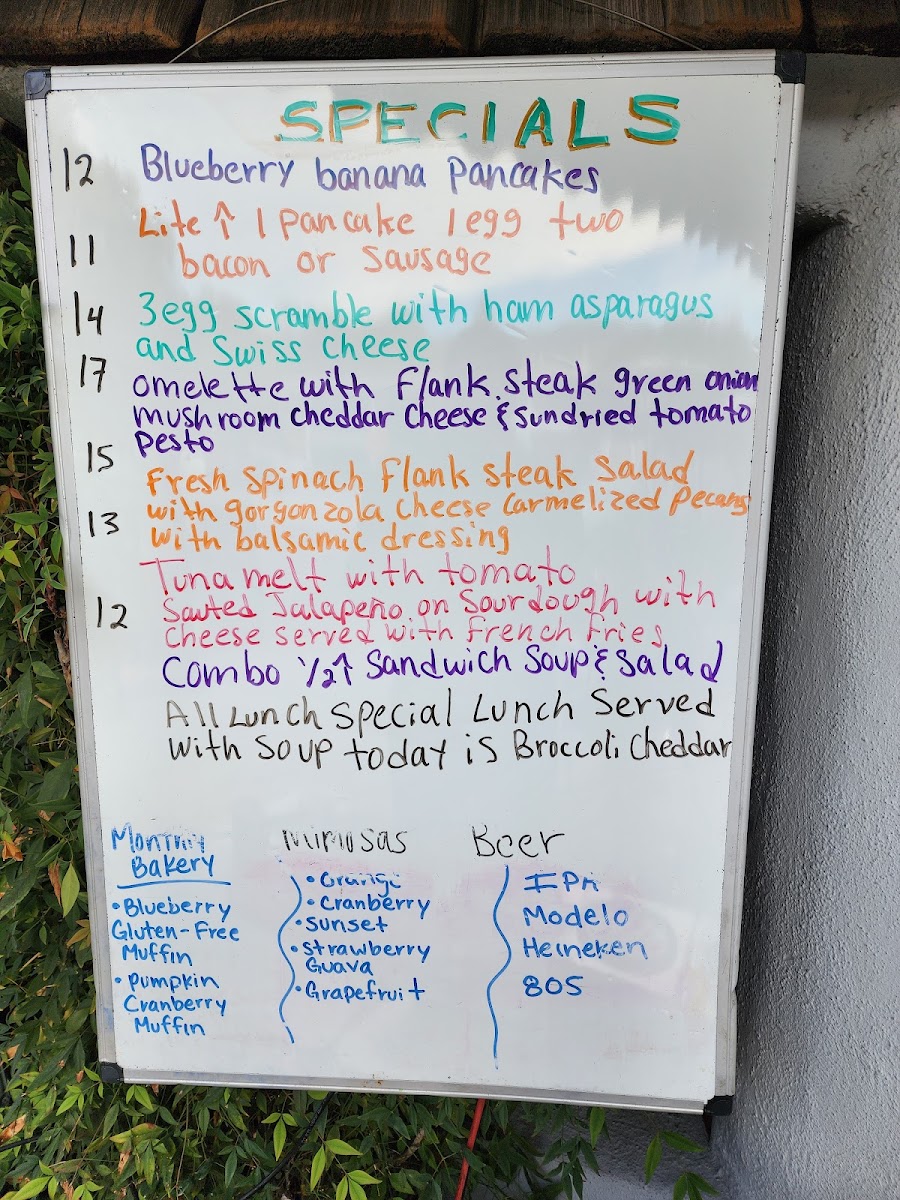 SPECIALS
12 Blueberry banana Pancakes
Lite ↑ 1 Pancake 1 egg two
11 bacon or Sausage
14 3egg scramble with ham asparagus
and Swiss Cheese
17 omelette with Flank steak green onion
mushroom cheddar cheese & Sundried tomato
Pesto
15 Fresh Spinach Flank Steak Salad
with gorgonzola cheese Carmelized Pecans
13 with balsamic dressing
Tuna melt with tomato
12 Sauted Jalapeño on Sourdough with
Cheese Served with French Fries
Combo 1/2↑ Sandwich Soup & Salad
All Lunch Special Lunch Served
With Soup today is Broccoli Cheddar
Monthly
Bakery
• Blueberry
Gluten-Free
Muffin
• Pumpkin
Cranberry
Muffin
Mimosas
• Orange
• Cranberry
• Sunset
• Strawberry
Guava
• Grapefruit
Beer
IPA
Modelo
Heineken
805